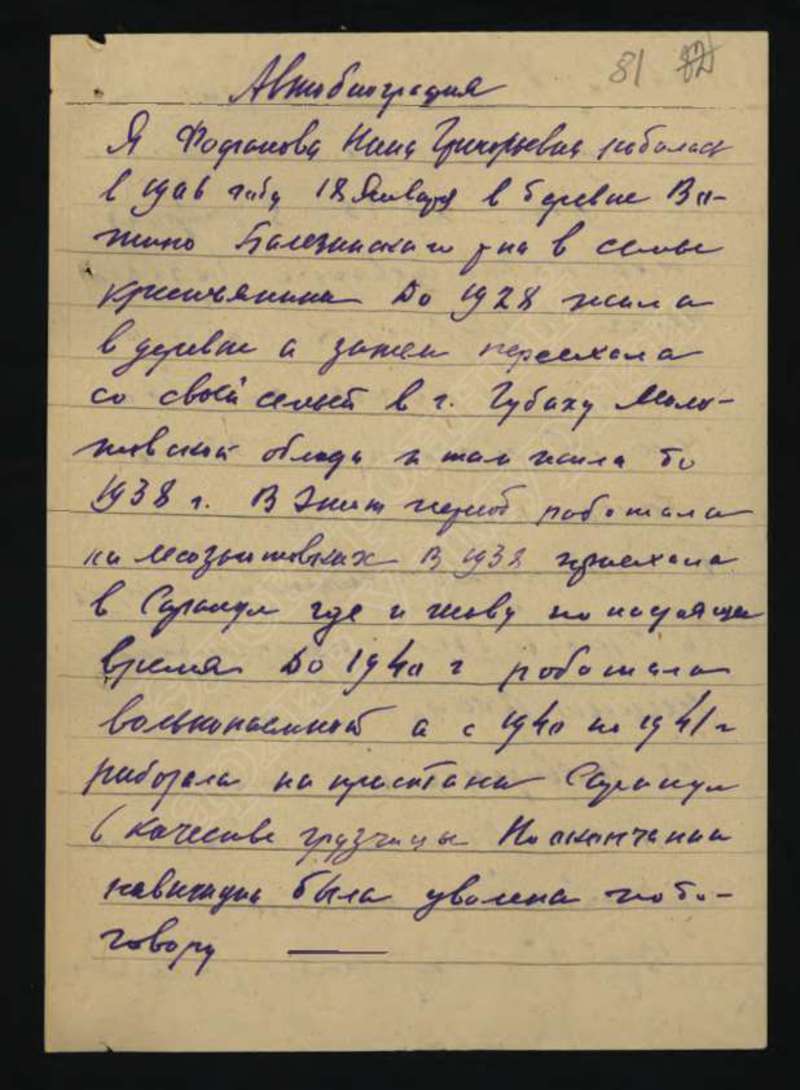 81 82
Автобиография
Я Фофанова Нина Григорьевна родилась
в 1906 году 18 Января в деревне Ва-
жино Балезинского р-на в семье
крестьянина До 1928 жила
в деревне а затем переехала
со своей семьей в г. Губаху Моло-
товской облсди и там жила до
1938 г. В этот период работала
на лесозаготовках В 1938 приехала
в Сарапул где и живу по настоящее
время До 1940 г работала
вольнонаемной а с 1940 по 1941 г
работала на пристани Сарапул
в качестве грузчицы По окончании
навигации была уволена по до-
говору